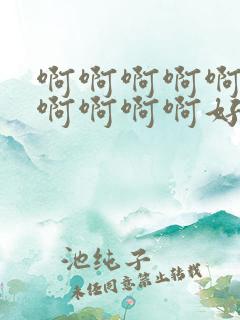 啊啊啊啊啊
啊啊啊啊好
池纯子
未经同意禁止转载